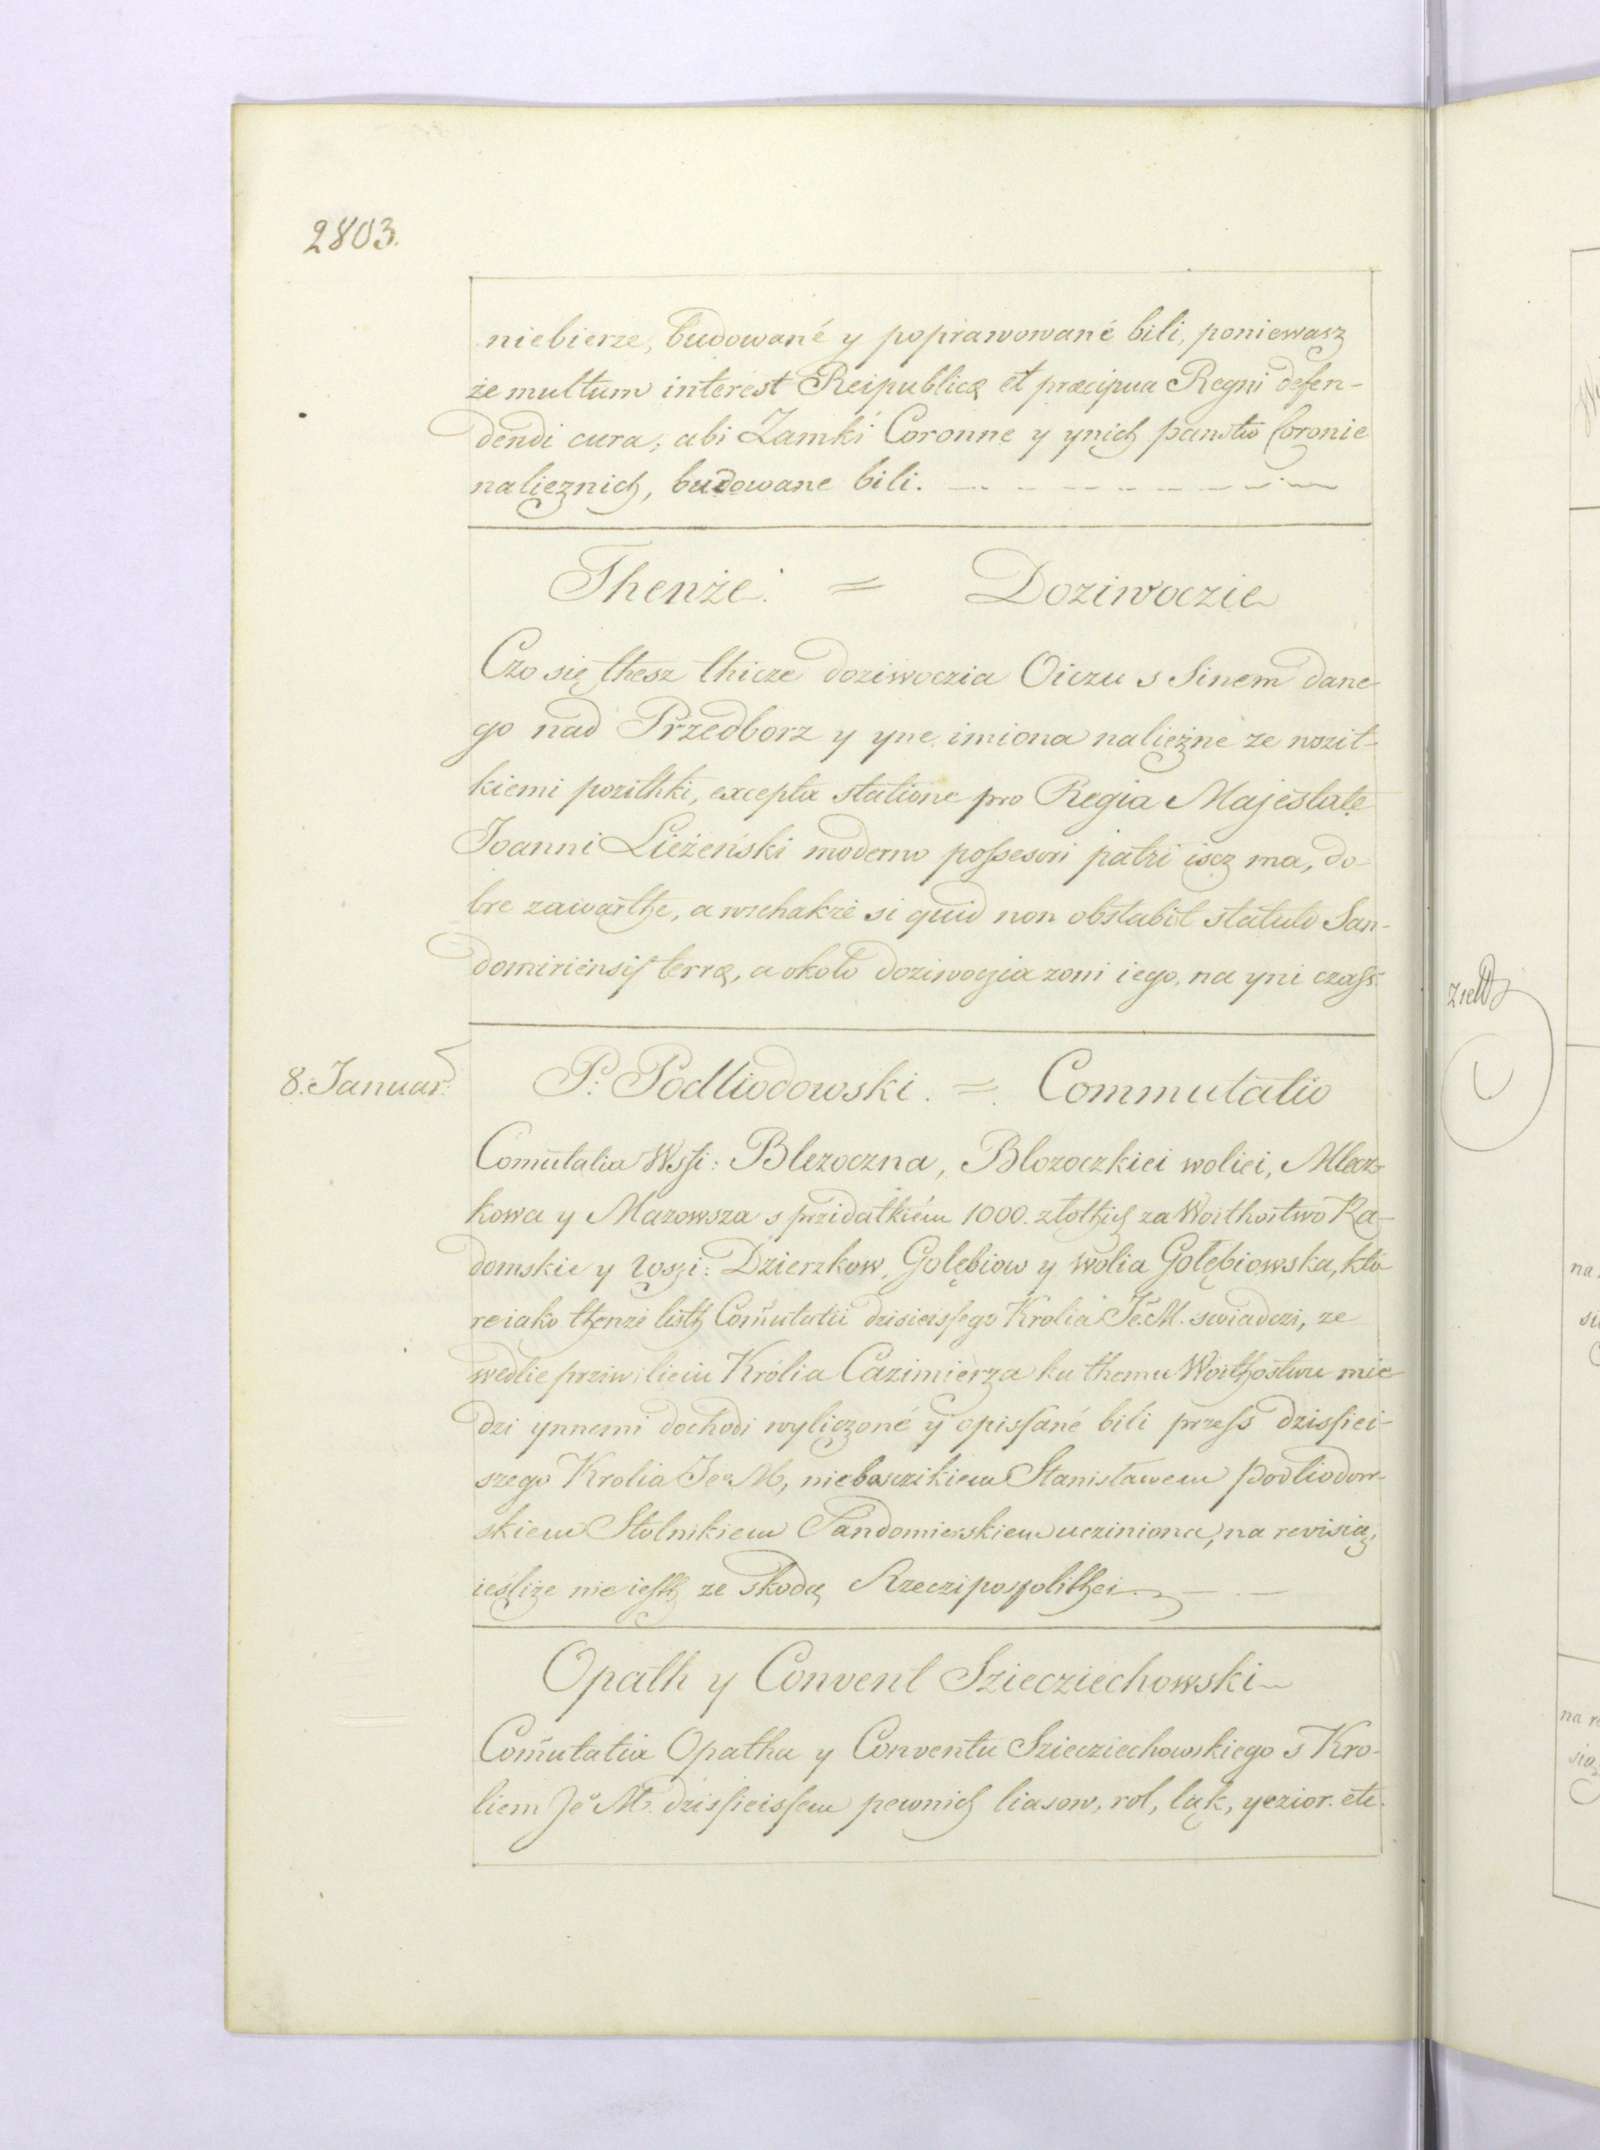 2803.
niebierze, budowané y poprawowané bili, poniewasz
że multum interest Reipublicę et præcipua Regni defen-
dendi cura, abi Zamki Coronne y ynich panstw Coronie
naliеznich, budowane bili.
Thenże. = Doziwoczie
Czo się thesz thicze doziwoczia Oiczu s Sinem dane-
go nad Przedborz y yne imiona należne ze wszit-
kiemi pozithki, excepta statione pro Regia Majestate
Joanni Lieżeński moderno possesori patri iscz ma, do-
bre zawarthe, a wschakże si quid non obstabit statuto San-
domiriensis terrę, a około doziwoczia zoni iego, na yni czass.
8. Januar.
P. Podliodowski. = Commutatio
Comutatia Wssi: Blezoczna, Blozoczkiei woliei, Mlecz-
kowa y Mazowsza s przidatkiem 1000. złothich za Woithostwo Ra-
domskie y wszi: Dzierzkow, Gołębiow y wolia Gołębiowska, któ-
re iako thenze listh Comutatii dzisieissego Krolia Je. M. swiadczi, ze
wedlie prziwilieiu Królia Cazimierza ku themu Woithostwu mie-
dzi ynnemi dochodi wyliczoné y opissané bili przess dzissiei-
szego Krolia Jeo M, nieboszczikiem Stanisławem Podliodow-
skiem Stolnikiem Sandomierskiem ucziniona, na revisią,
iesliże nie iesth ze skodą Rzeczipospolithei
Opath y Convent Szieciechowski
Comutatia Opatha y Conventu Szieciechowskiego s Kro-
liem Jeo M. dzissieissem pewnich liasow, rol, ląk, yezior. etc.